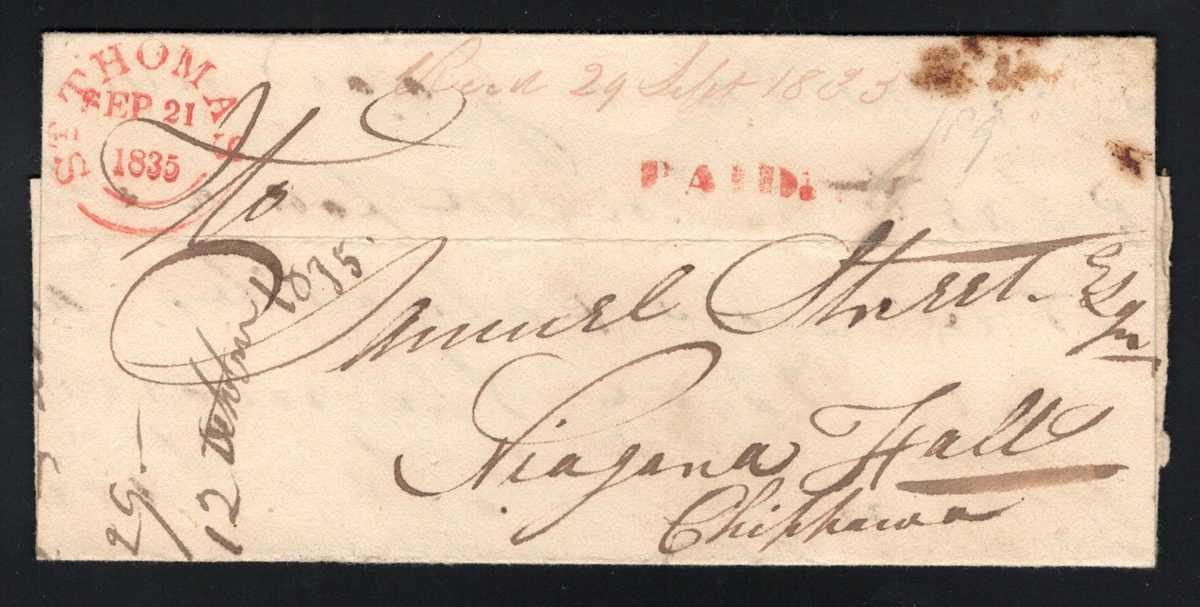 ST THOMAS
SEP 21
1835
Recd 29 Sept 1835
PAID.
To
Samuel Street Esqr
Niagara Falls
Chippawa
1835
12
29